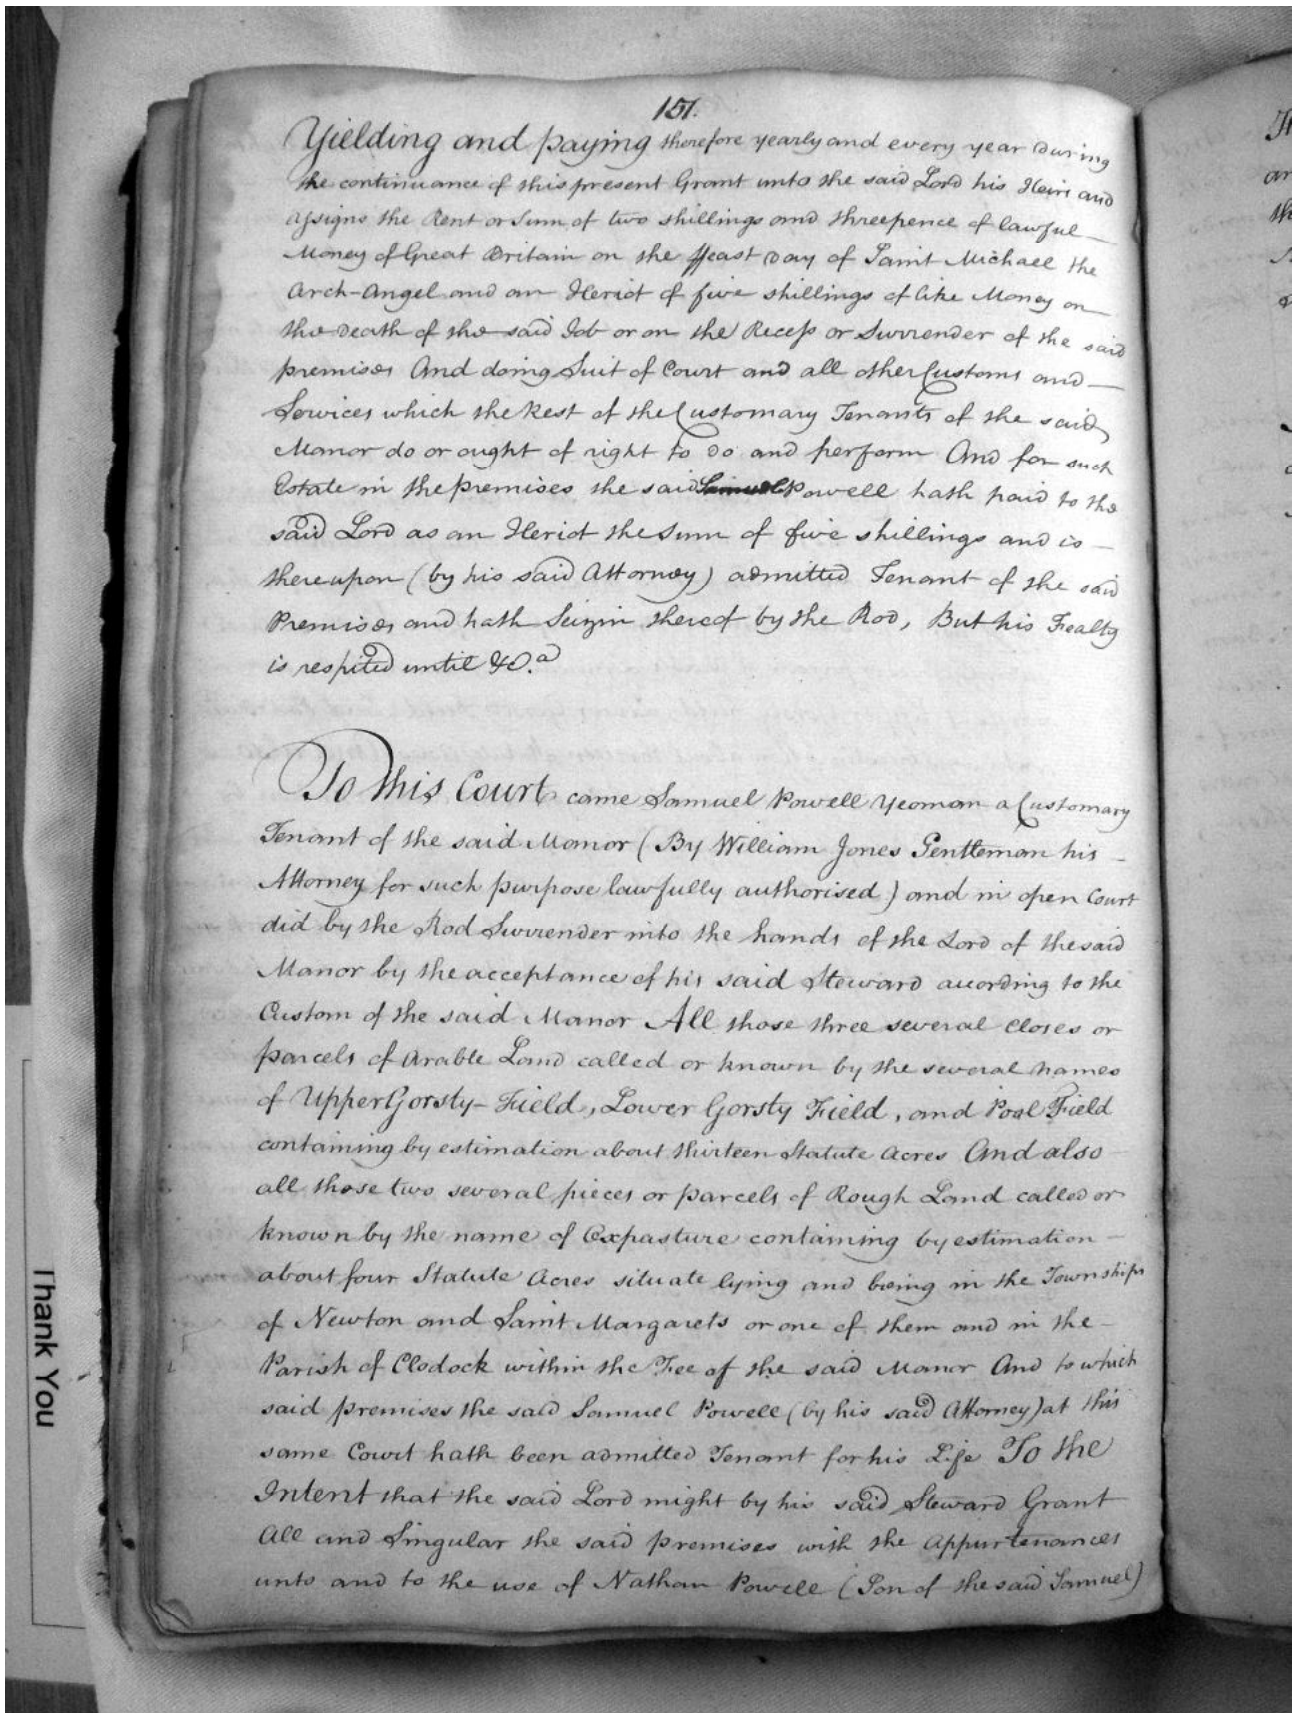 151.
Yielding and paying therefore yearly and every year during
the continuance of this present Grant unto the said Lord his Heirs and
assigns the Rent or Sum of two shillings and threepence of lawful
Money of Great Britain on the ffeast Day of Saint Michael the
Arch-Angel and an Heriot of five shillings of like Money on
the Death of the said Job or on the Recess or Surrender of the said
premises And doing Suit of Court and all other Customs and
Services which the Rest of the Customary Tenants of the said
Manor do or ought of right to do and perform And for such
Estate in the premises the said Samuel Powell hath paid to the
said Lord as an Heriot the Sum of five shillings and is
thereupon (by his said Attorney) admitted Tenant of the said
Premises and hath Seizin thereof by the Rod, But his Fealty
is respited until &c.a
To this Court came Samuel Powell Yeoman a Customary
Tenant of the said Manor (By William Jones Gentleman his
Attorney for such purpose lawfully authorised) and in open Court
did by the Rod Surrender into the hands of the Lord of the said
Manor by the acceptance of his said Steward according to the
Custom of the said Manor All those three several closes or
parcels of arable Land called or known by the several names
of Upper Gorsty-Field, Lower Gorsty Field, and Pool Field
containing by estimation about thirteen Statute Acres And also
all those two several pieces or parcels of Rough Land called or
known by the name of Oxpasture containing by estimation
about four Statute Acres situate lying and being in the Townships
of Newton and Saint Margarets or one of them and in the
Parish of Clodock within the Fee of the said Manor And to which
said premises the said Samuel Powell (by his said Attorney) at this
same Court hath been admitted Tenant for his Life To the
Intent that the said Lord might by his said Steward Grant
All and Singular the said premises with the Appurtenances
unto and to the use of Nathan Powell (Son of the said Samuel)
Thank You